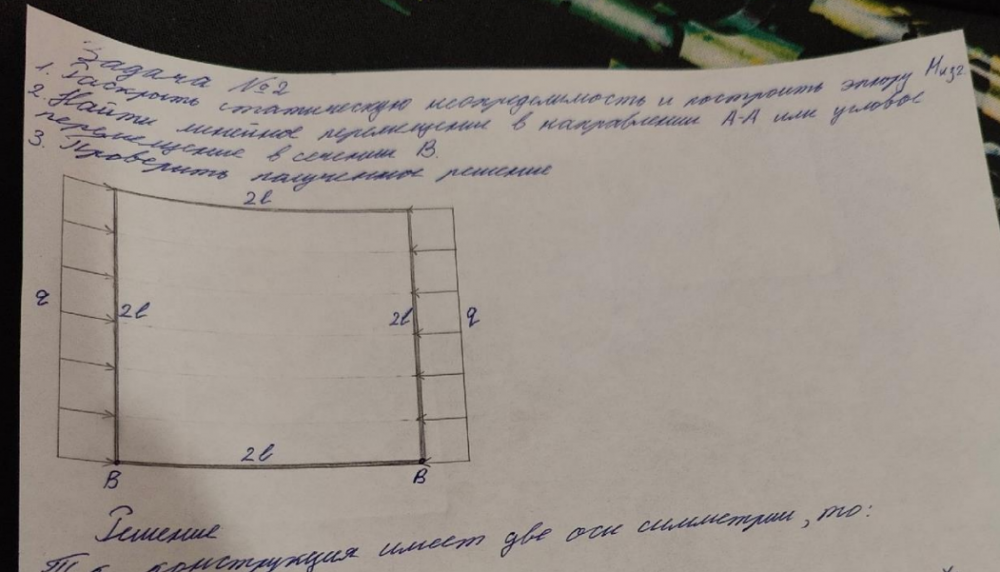 Задача №2
1. Раскрыть статическую неопределимость и построить эпюру Mизг.
2. Найти линейное перемещение в направлении A-A или угловое
перемещение в сечении B.
3. Проверить полученное решение
2l
q
2l
2l
q
2l
B
B
Решение
конструкция имеет две оси симметрии, то: